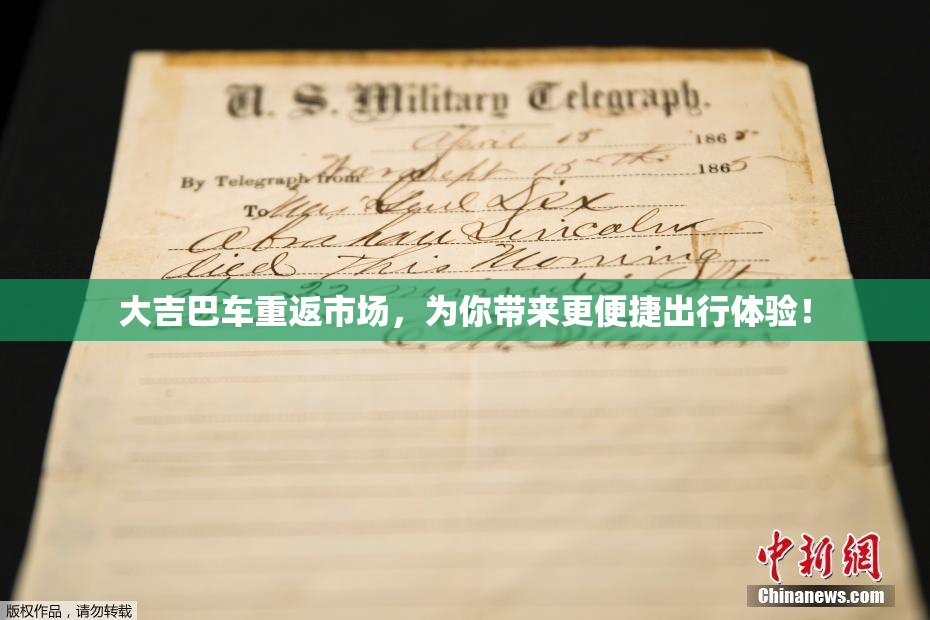 U. S. Military Telegraph.
April 15 1865
By Telegraph from War Dept 15th 1865
To Maj Genl Dix
Abraham Lincoln
died This Morning
at 22 minutes after
大吉巴车重返市场，为你带来更便捷出行体验！
中新网
Chinanews.com
版权作品，请勿转载